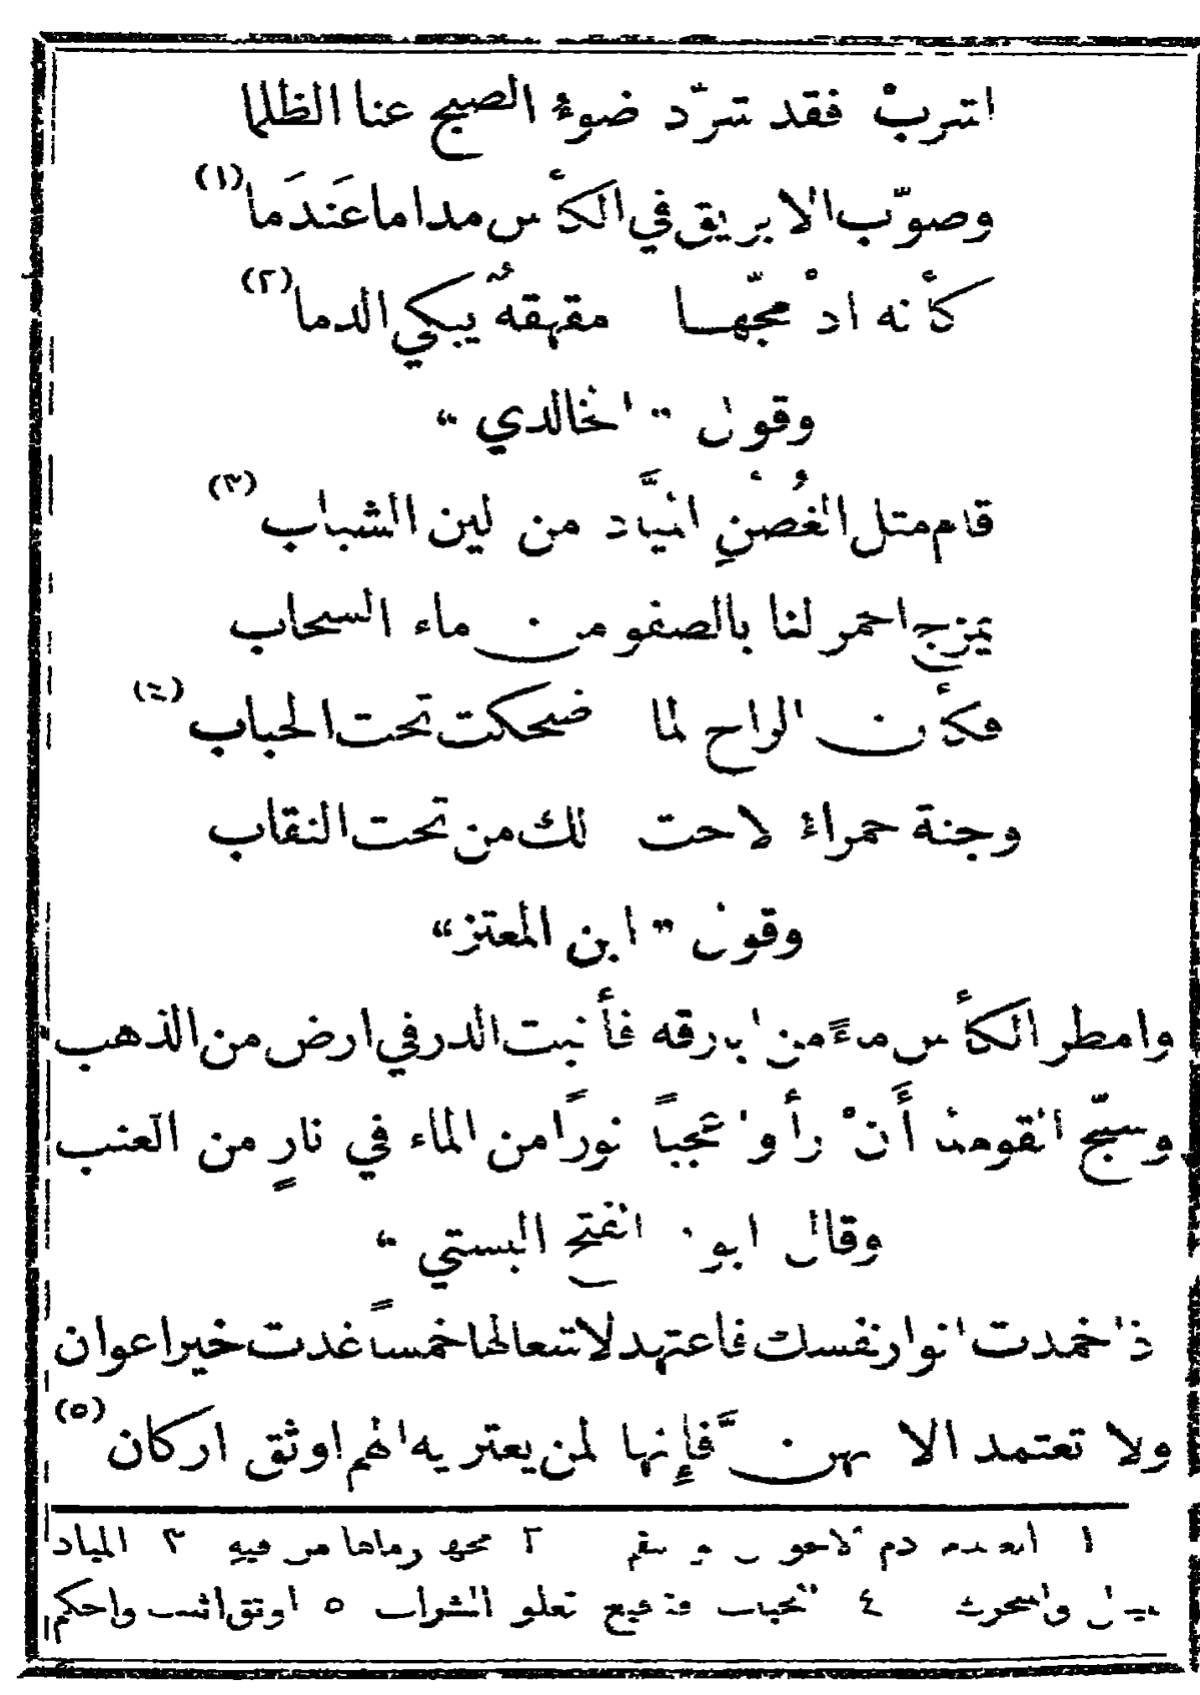 اشربْ فقد شرّد ضوءُ الصبح عنا الظلما
وصوّب الابريق في الكأس مداما عَندَما (١)
كأنه اذْ مجّها مقهقهٌ يبكي الدما (٢)
وقول " الخالدي "
قام مثل الغُصْنِ الميَّاد من لين الشباب (٣)
يمزج احمر لنا بالصفو من ماء السحاب
فكأن الراح لما ضحكت تحت الحباب (٤)
وجنة حمراءُ لاحت لك من تحت النقاب
وقول " ابن المعتز "
وامطر الكأس ماءً من ابارقه فأنبت الدر في ارض من الذهب
وسبّح القوم لما أَنْ رأوا عجباً نورًا من الماء في نارٍ من العنب
وقال ابو الفتح البستي "
ذا خمدت انوار نفسك فاعتهد لاشعالها خمساً غدت خير اعوان
ولا تعتمد الا بهن فإِنها لمن يعتريه الهم اوثق اركان (٥)
١ العندم دم الاخوين و بقم ٢ مجها رماها من فيه ٣ المياد
ميال والمتحرك ٤ الحباب فقاقيع تعلو الشراب ٥ اوثق اثبت واحكم